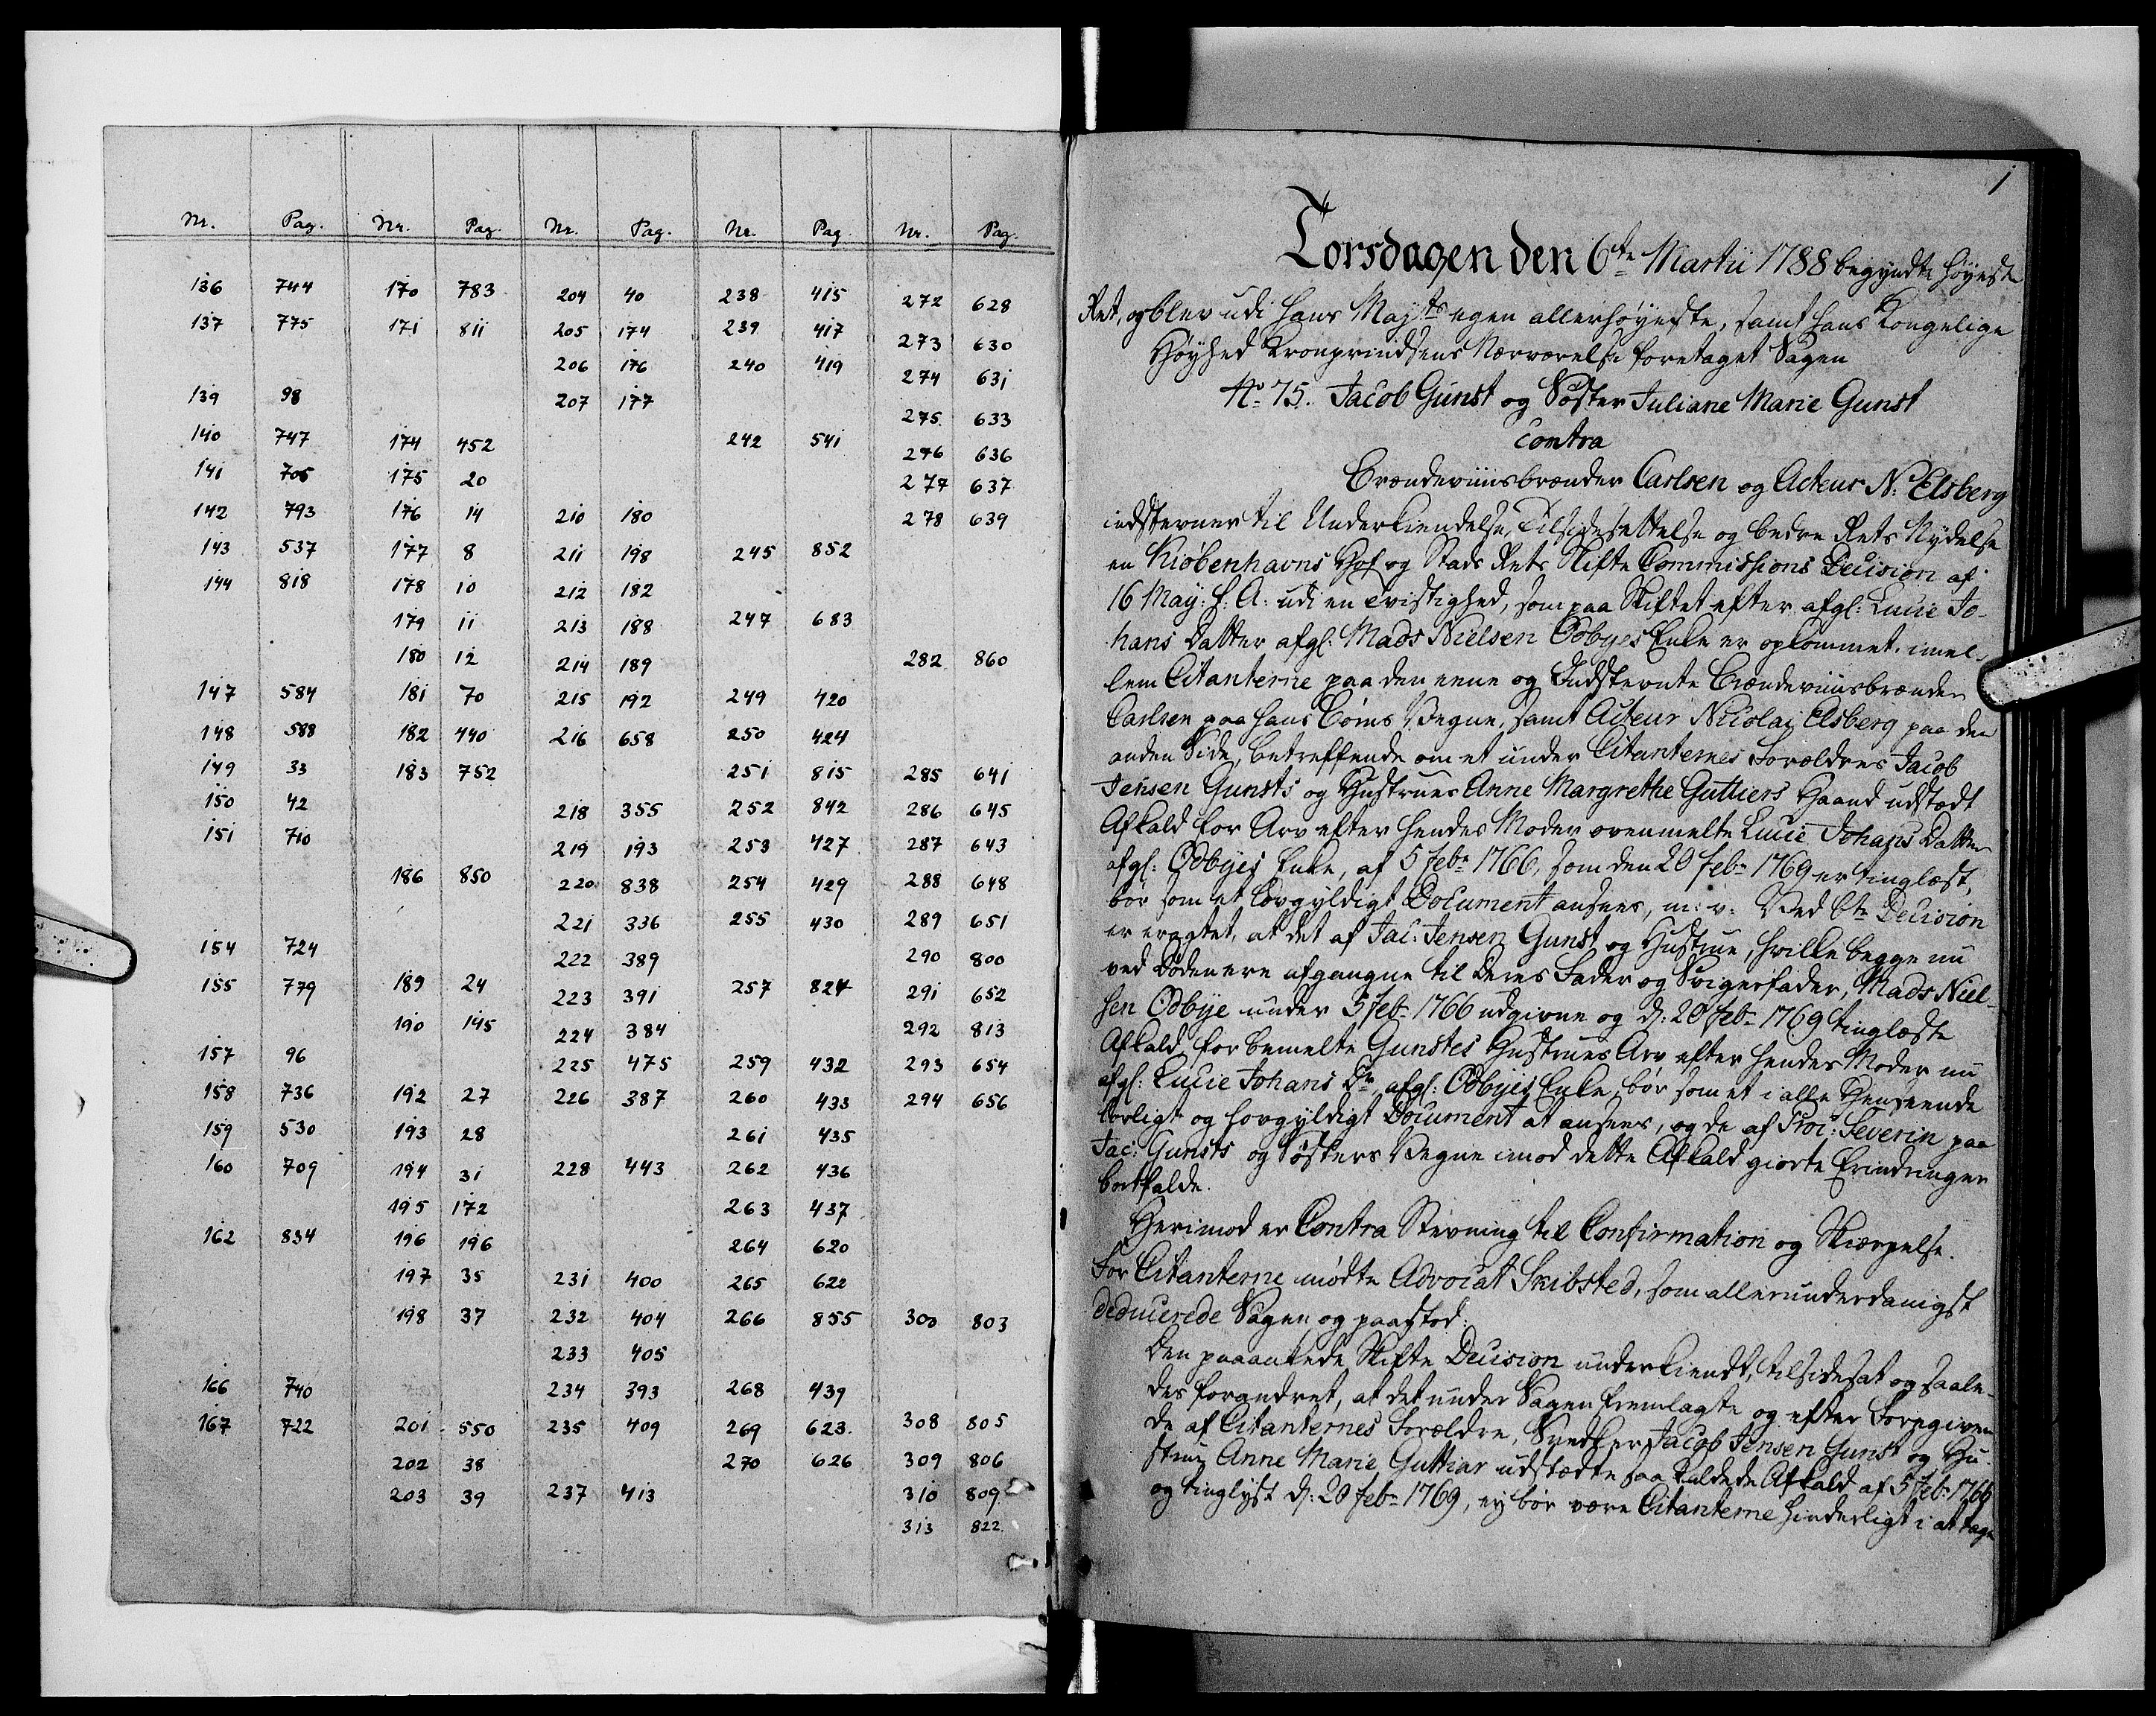 Nr. Pag. Nr. Pag. Nr. Pag. Nr. Pag. Nr. Pag.
136 744 170 783 204 40 238 415 272 628
137 775 171 811 205 174 239 417 273 630
206 176 240 419 274 631
139 98 207 177 275 633
140 747 174 452 242 541 276 636
141 706 175 20 277 637
142 793 176 14 210 180 278 639
143 537 177 8 211 198 245 852
144 818 178 10 212 182
179 11 213 188 247 683
180 12 214 189 282 860
147 584 181 70 215 192 249 420
148 588 182 440 216 658 250 424
149 33 183 752 251 815 285 641
150 42 218 355 252 842 286 645
151 710 219 193 253 427 287 643
186 850 220 838 254 429 288 648
221 336 255 430 289 651
154 724 222 389 290 800
155 779 189 24 223 391 257 824 291 652
190 145 224 384 292 813
157 96 225 475 259 432 293 654
158 736 192 27 226 387 260 433 294 656
159 530 193 28 261 435
160 709 194 31 228 443 262 436
195 172 263 437
162 834 196 196 264 620
197 35 231 400 265 622
198 37 232 404 266 855 300 803
233 405
166 740 234 393 268 439
167 722 201 550 235 409 269 623 308 805
202 38 270 626 309 806
203 39 237 413 310 809
313 822
1
Torsdagen den 6te Martii 1788 begyndte Høyeste
Ret, og blev udi Hans Mayts egen allerhøyeste, samt Hans Kongelige
Høyhed Kronprindsens Nærværelse foretaget Sagen
No 75. Jacob Gunst og Søster Juliane Marie Gunst
contra
Brændeviinsbrænder Carlsen og Acteur N: Elsberg
indstevner til Underkiendelse, Tilsidesættelse og bedre Rets Nydelse
en Kiøbenhavns Hof og Stads Rets Skifte Commissions Decision af
16 May: f: A: udi en Tvistighed, som paa Skiftet efter afgl: Lucie Jo-
hans Datter afgl: Mads Nielsen Odbyes Enke er opkommet imel-
lem Citanterne paa den eene og Indstevnte Brændeviinsbrænder
Carlsen paa hans Børns Vegne, samt Acteur Nicolai Elsberg paa den
anden Side, betreffende om et under Citanternes Forældres Jacob
Jensen Gunsts og Hustrues Anne Margrethe Guttiers Haand udstædt
Afkald for Arv efter hendes Moder ovenmelte Lucie Johans Datter
afgl: Odbyes Enke, af 5 Febr 1766, som den 20 Febr 1769 er tinglæst,
bør som et lovgyldigt Document ansees, m: v: Ved bte Decision
er eragtet, at det af Jac: Jensen Gunst og Hustrue, hvilke begge nu
ved Døden ere afgangne til deres Fader og Svigerfader, Mads Niel-
sen Odbye under 5 Febr 1766 udgivne og d: 20 Febr 1769 tinglæste
Afkald for bemelte Gunstes Hustrues Arv efter hendes Moder nu
afgl: Lucie Johans Dr afgl: Odbyes Enke, bør som et i alle Henseende
lovligt og lovgyldigt Document at ansees, og de af Proc: Severin paa
Jac: Gunsts og Søsters Vegne imod dette Afkald giorte Erindringer
bortfalde.
Herimod er Contra Stevning til Confirmation og Skierpelse.
For Citanterne mødte Advocat Skibsted, som allerunderdanigst
deducerede Sagen og paastod:
Den paaankede Skifte Decision underkiendt, tilsidesat og saale-
des forandret, at det under Sagen fremlagte og efter Foregiven-
de af Citanternes Forældre, Snedker Jacob Jensen Gunst og Hu-
strue Anne Marie Guttiar udstædte saa kaldede Afkald af 5 Feb: 1766
og tinglyst d: 20 Febr 1769, ey bør være Citanterne hinderligt i at tage